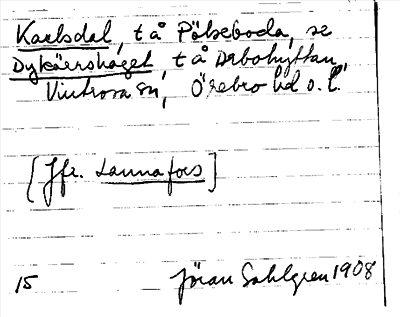 Karlsdal, t å Pålseboda, se
Dykärrshöget, t å Drbohyttan,
Vintrosa sn, Örebro hd o. l.
[Jfr. Lannafors]
15 Jöran Sahlgren 1908